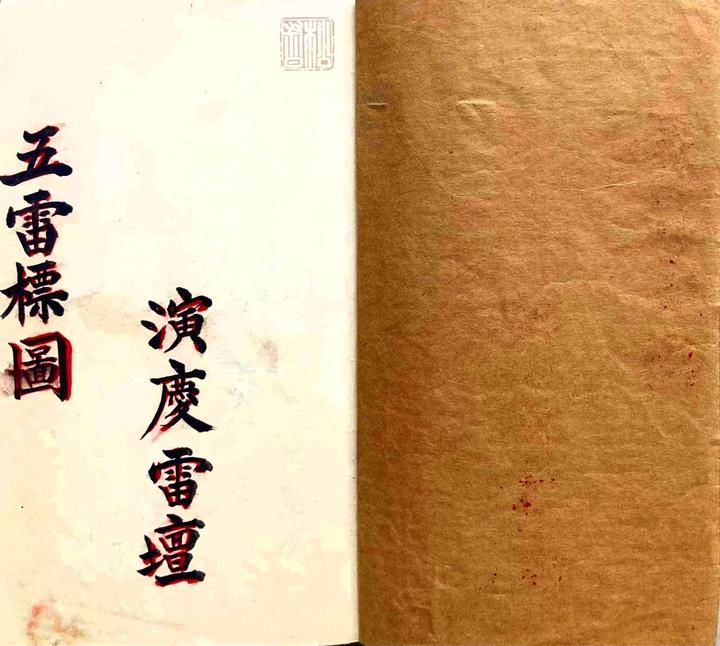 演慶雷壇
五雷標圖